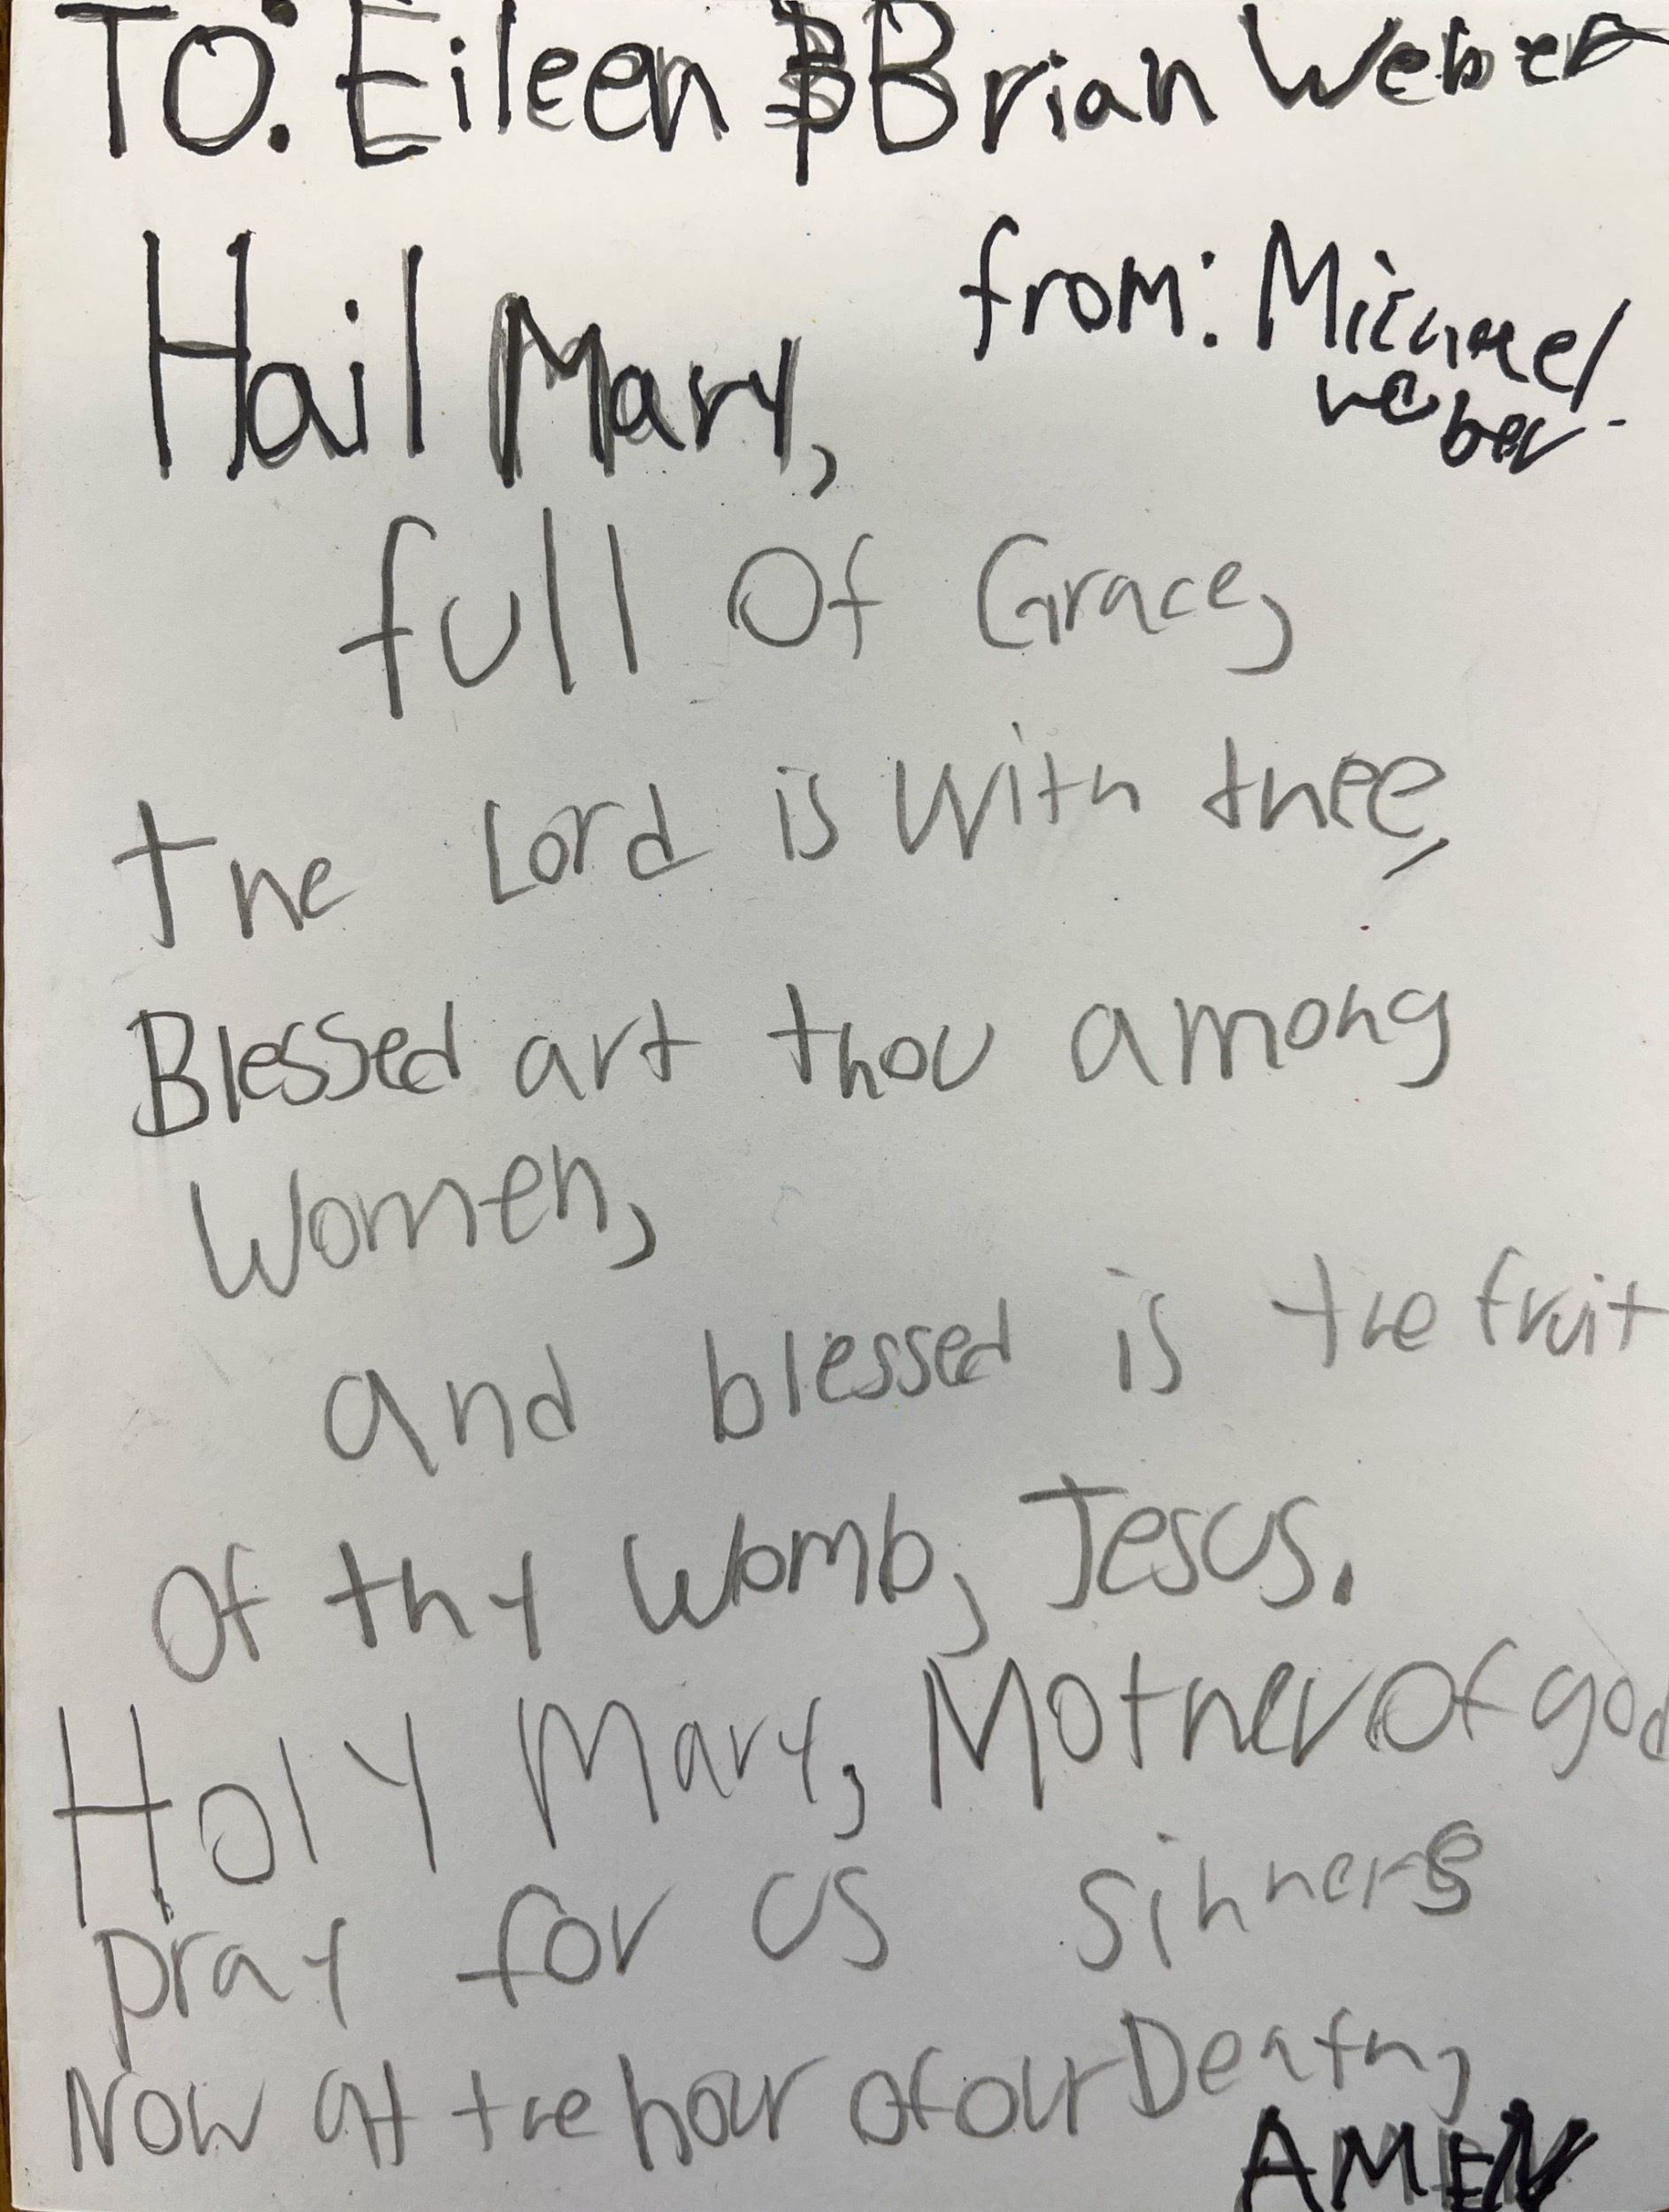 TO: Eileen & Brian Weber
from: Michael
weber
Hail Mary,
full Of Grace,
the Lord is With thee,
Blessed art thou among
Women,
and blessed is the fruit
Of thy Womb, Jesus.
Holy Mary, Mother Of god
pray for us sinners
Now at the hour of our Death,
AMEN